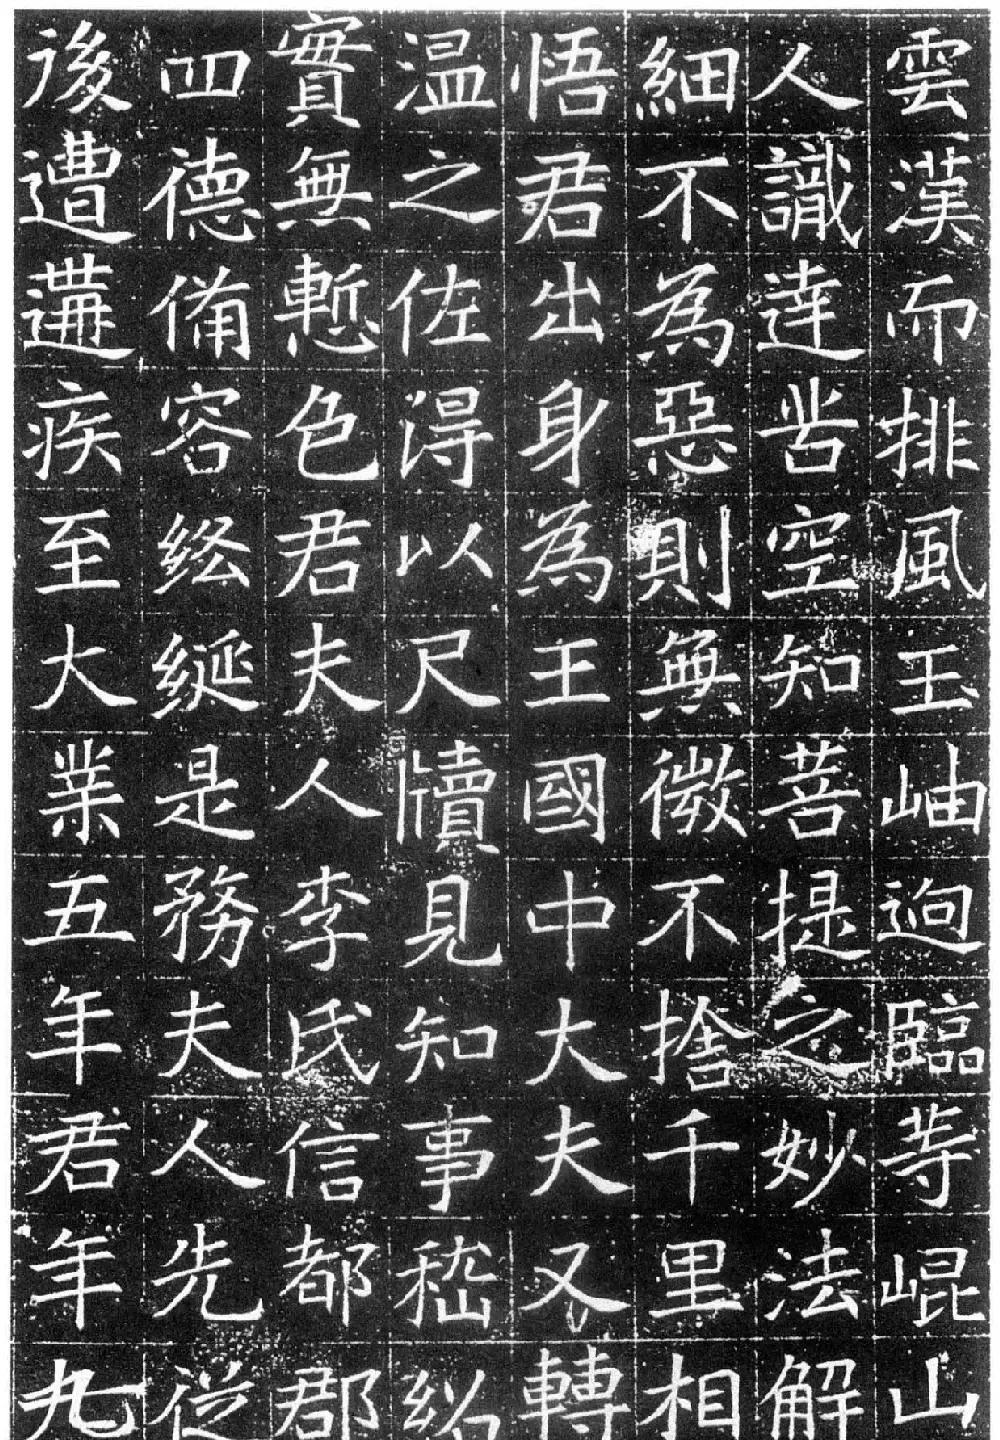 雲漢而排風玉岫逈臨等崐山
人識達苦空知菩提之妙法解
細不為惡則無微不捨千里相
悟君出身為王國中大夫又轉
温之佐得以尺牘見知事嵇紹
實無慙色君夫人李氏信都郡
四德俻容綘綖是務夫人先從
後遭遘疾至大業五年君年九